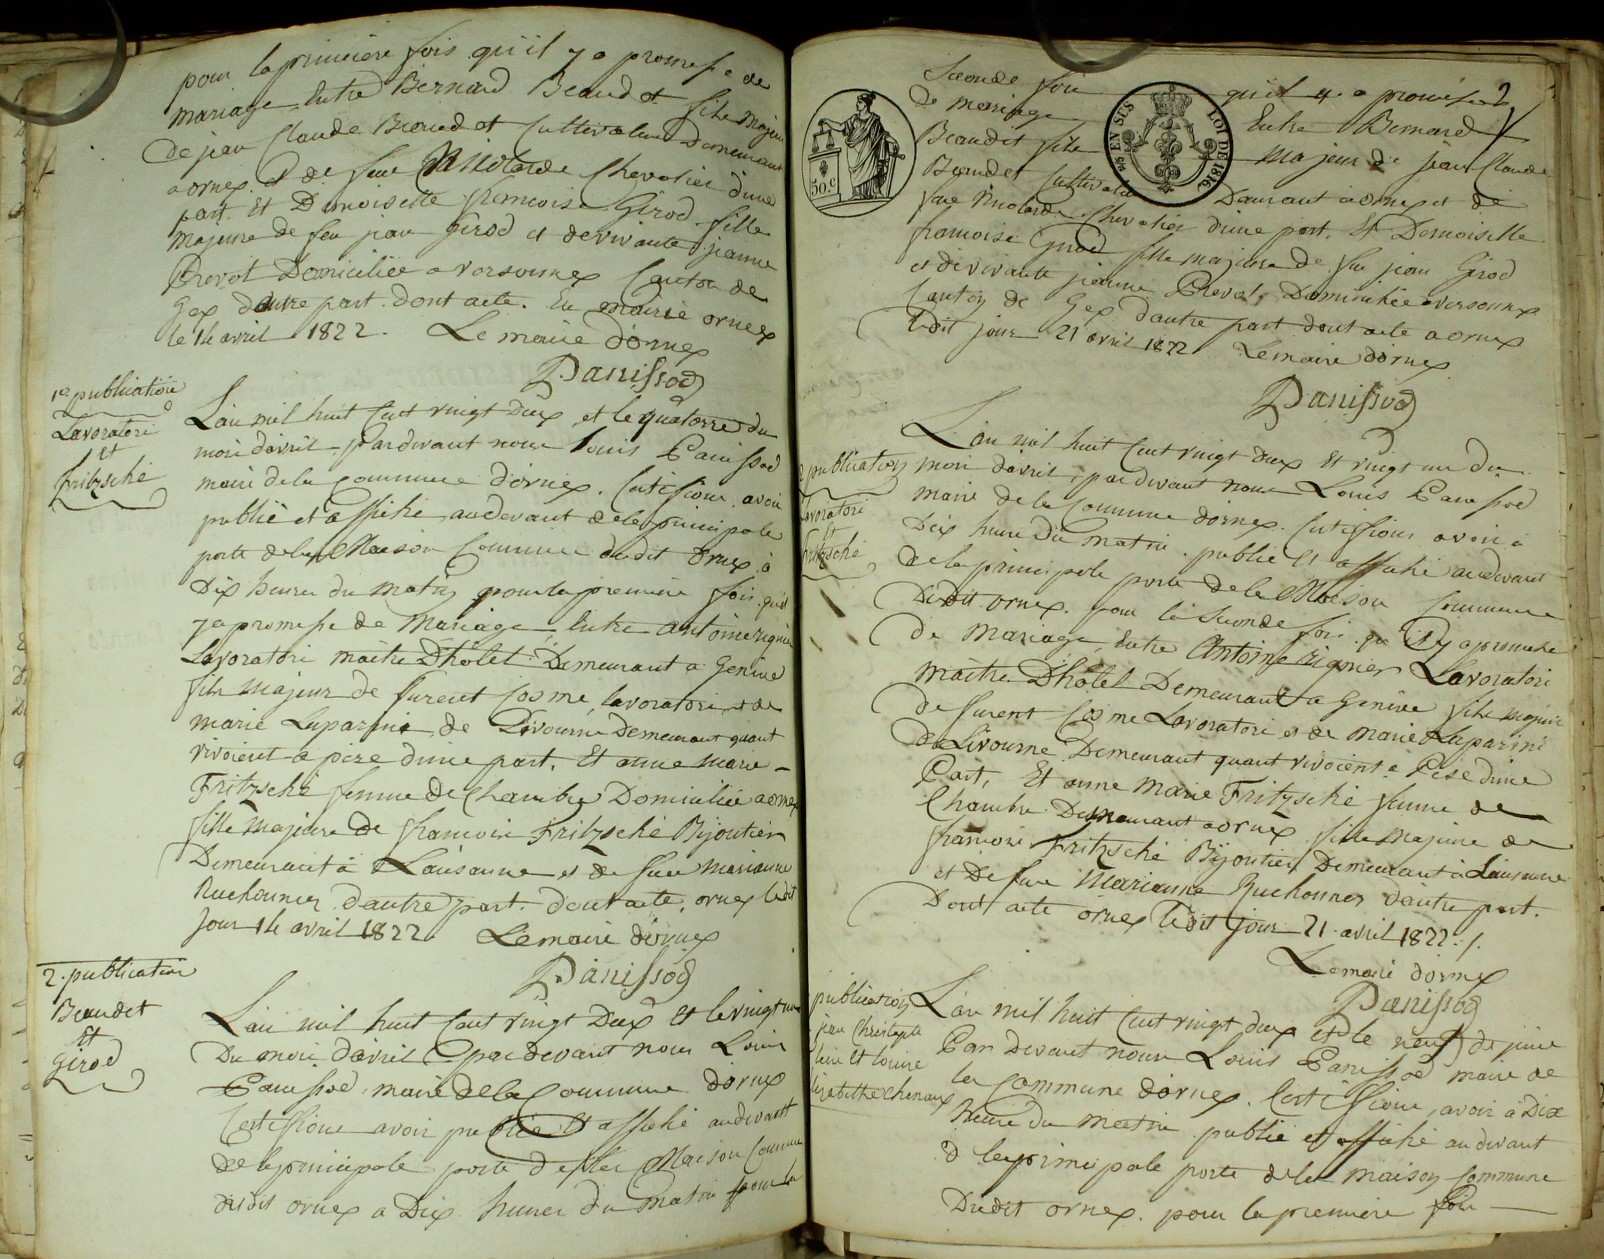 pour la premiere fois qu'il y a promesse de
mariage Entre Bernard Beaudet fils majeur
de jean Claude Beaudet Cultivateur Demeurant
a ornex et de feue Nicolarde Chevalier d'une
part. Et Demoiselle francoise Girod fille
majeure de feu jean Girod et de vivante jeanne
Prevot Domiciliée a versonnex Canton de
Gex d'autre part. dont acte. En mairie ornex
le 14 avril 1822. Le maire d'ornex
Panissod
1e publication
Lavoratori
et
fritzsché
L'an mil huit Cent vingt Deux et le quatorze du
mois d'avril Pardevant nous Louis Panissod
maire de la Commune d'ornex. Certifions avoir
publié et affiché, au devant de la principale
porte de la Maison Commune dudit ornex à
Dix heures du Matin pour la premiere fois qu'il
y a promesse de Mariage, Entre antoine
Lavoratori maitre D'hôtel Demeurant a Geneve
fils majeur de Cosme lavoratori et de
marie Luparini de Livourne Demeurant quant
vivoient a pize d'une part. Et anne marie
Fritzsché femme de Chambre Domiciliée a ornex
fille majeure de francois Fritzsché Bijoutier
Demeurant à Lausanne et de feue Marianne
Ruchonner d'autre part. dont acte, ornex ledit
Jour 14 avril 1822. Le maire d'ornex
Panissod
2. publication
Beaudet
Et
Girod
L'an mil huit Cent vingt Deux et le vingt un
Du mois d'avril par Devant nous Louis
Panissod maire de la Commune d'ornex
Certifions avoir publié Et affiché au devant
de la principale porte de la Maison Commune
dudit ornex a Dix heures du matin pour la
2
Seconde fois qu'il y a promesse
de mariage Entre Bernard
Beaudet fils majeur de jean Claude
Beaudet Cultivateur Demeurant a ornex et de
feue Nicolarde Chevalier d'une part. Et Demoiselle
francoise Girod fille majeure de feu jean Girod
et de vivante jeanne Prevot, Domiciliée a versonnex
Canton de Gex d'autre part dont acte a ornex
ledit jour 21 avril 1822 Le maire d'ornex
50.c
EN SUS LOI DE 1816.
Panissod
publication
Lavoratori
Et
fritzsché
L'an mil huit Cent vingt deux Et vingt un du
mois d'avril, pardevant nous Louis Panissod
maire de la Commune d'ornex. Certifions avoir à
Dix heures Du matin publié Et affiché au devant
de la principale porte de la Maison Commune
Dudit ornex. pour la seconde fois qu'il y a promesse
de Mariage, Entre Antoine Lavoratori
maitre D'hôtel Demeurant a Genève fils majeur
de Cosme Lavoratori et de marie Luparini
de Livourne Demeurant quant vivoient a Pise d'une
Part, Et anne Marie Fritzsché femme de
Chambre Demeurant a ornex fille majeure de
francois Fritzsché Bijoutier Demeurant à Lausanne
et De feue Marianne Ruchonner d'autre part.
Dont acte ornex ledit jour 21 avril 1822.
Le maire d'ornex
Panissod
publication
jean Christophe
Et louise
Elizabethe chenaux
L'an mil huit Cent vingt deux et le neuf de juin
Par Devant nous Louis Panissod maire de
la Commune d'ornex. Certifions, avoir à Dix
heures du matin publié et affiché au devant
d la principale porte de la maison Commune
Dudit ornex. pour la premiere fois